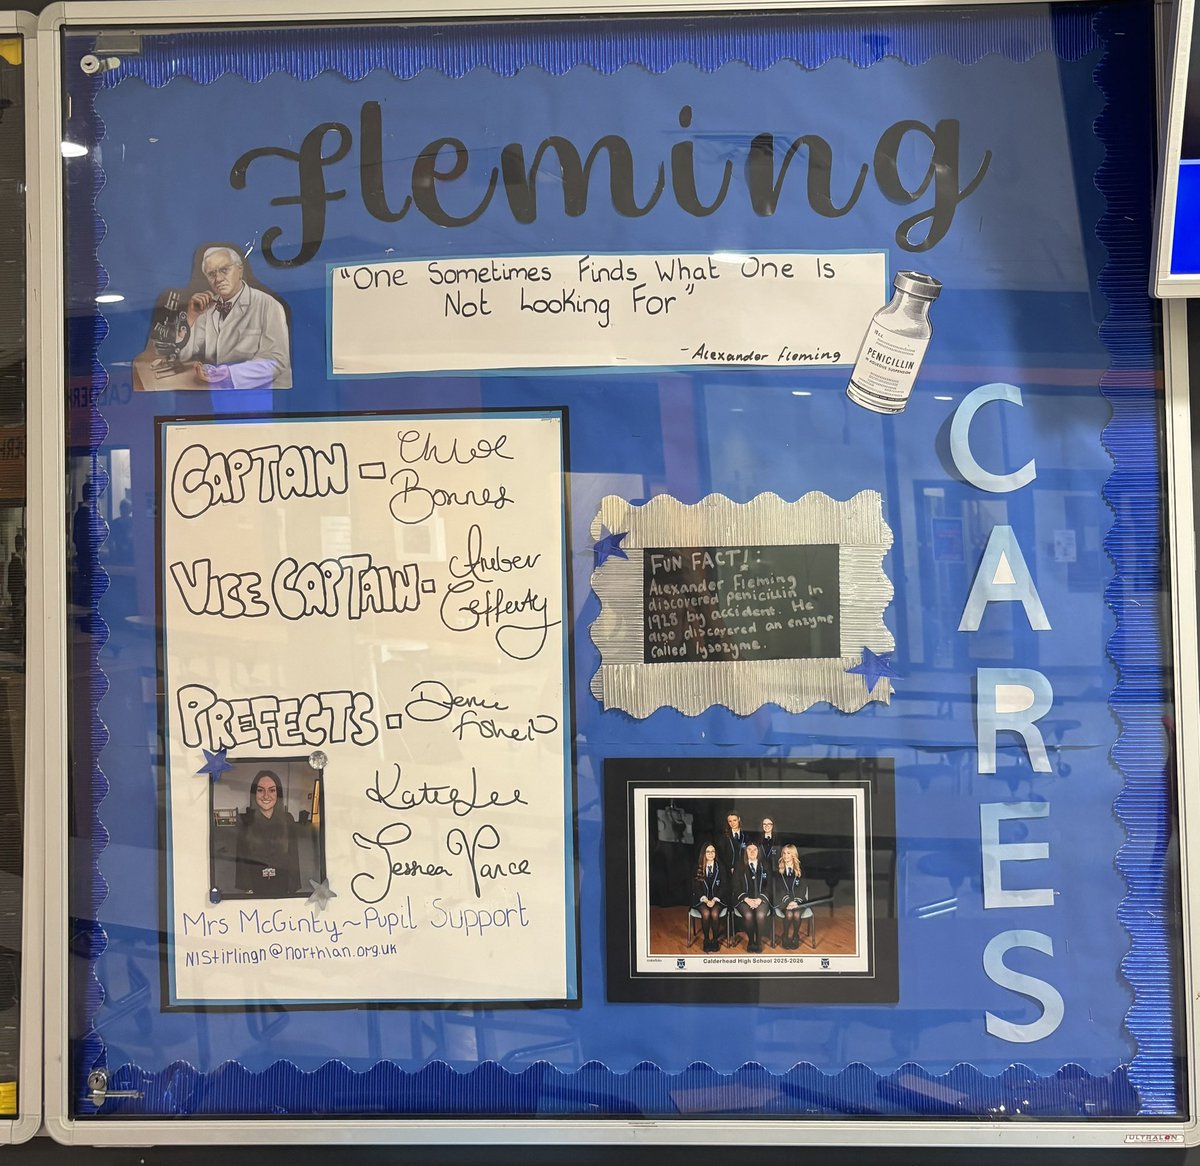 Fleming
"One Sometimes Finds What One Is
Not Looking For"
- Alexander Fleming
PENICILLIN
IN AQUEOUS SUSPENSION
CAPTAIN - Chloe
Bonnes
VICE CAPTAIN - Amber
Cefferty
PREFECTS -
Katie Lee
Jessica Vance
Mrs McGinty ~ Pupil Support
N1Stirlingn@northlan.org.uk
FUN FACT!:
Alexander Fleming
discovered penicillin in
1928 by accident. He
also discovered an enzyme
called lysozyme.
Calderhead High School 2025-2026
CARES
ULTRALON